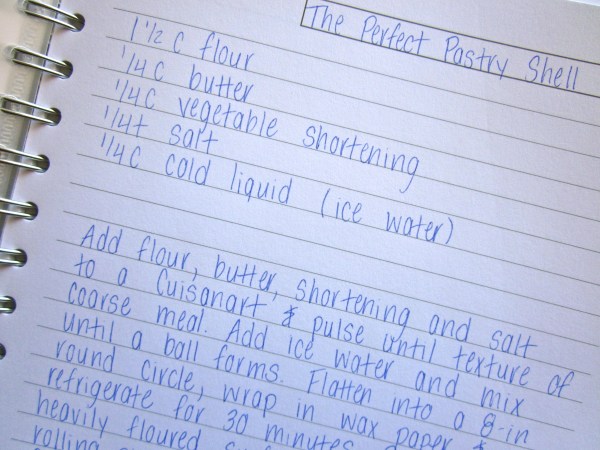 The Perfect Pastry Shell
1 1/2 C flour
1/4 C butter
1/4 C vegetable shortening
1/4 t salt
1/4 C cold liquid (ice water)
Add flour, butter, shortening and salt
to a Cuisanart & pulse until texture of
coarse meal. Add ice water and mix
until a ball forms. Flatten into a 8-in
round circle, wrap in wax paper &
refrigerate for 30 minutes
heavily floured
rolling